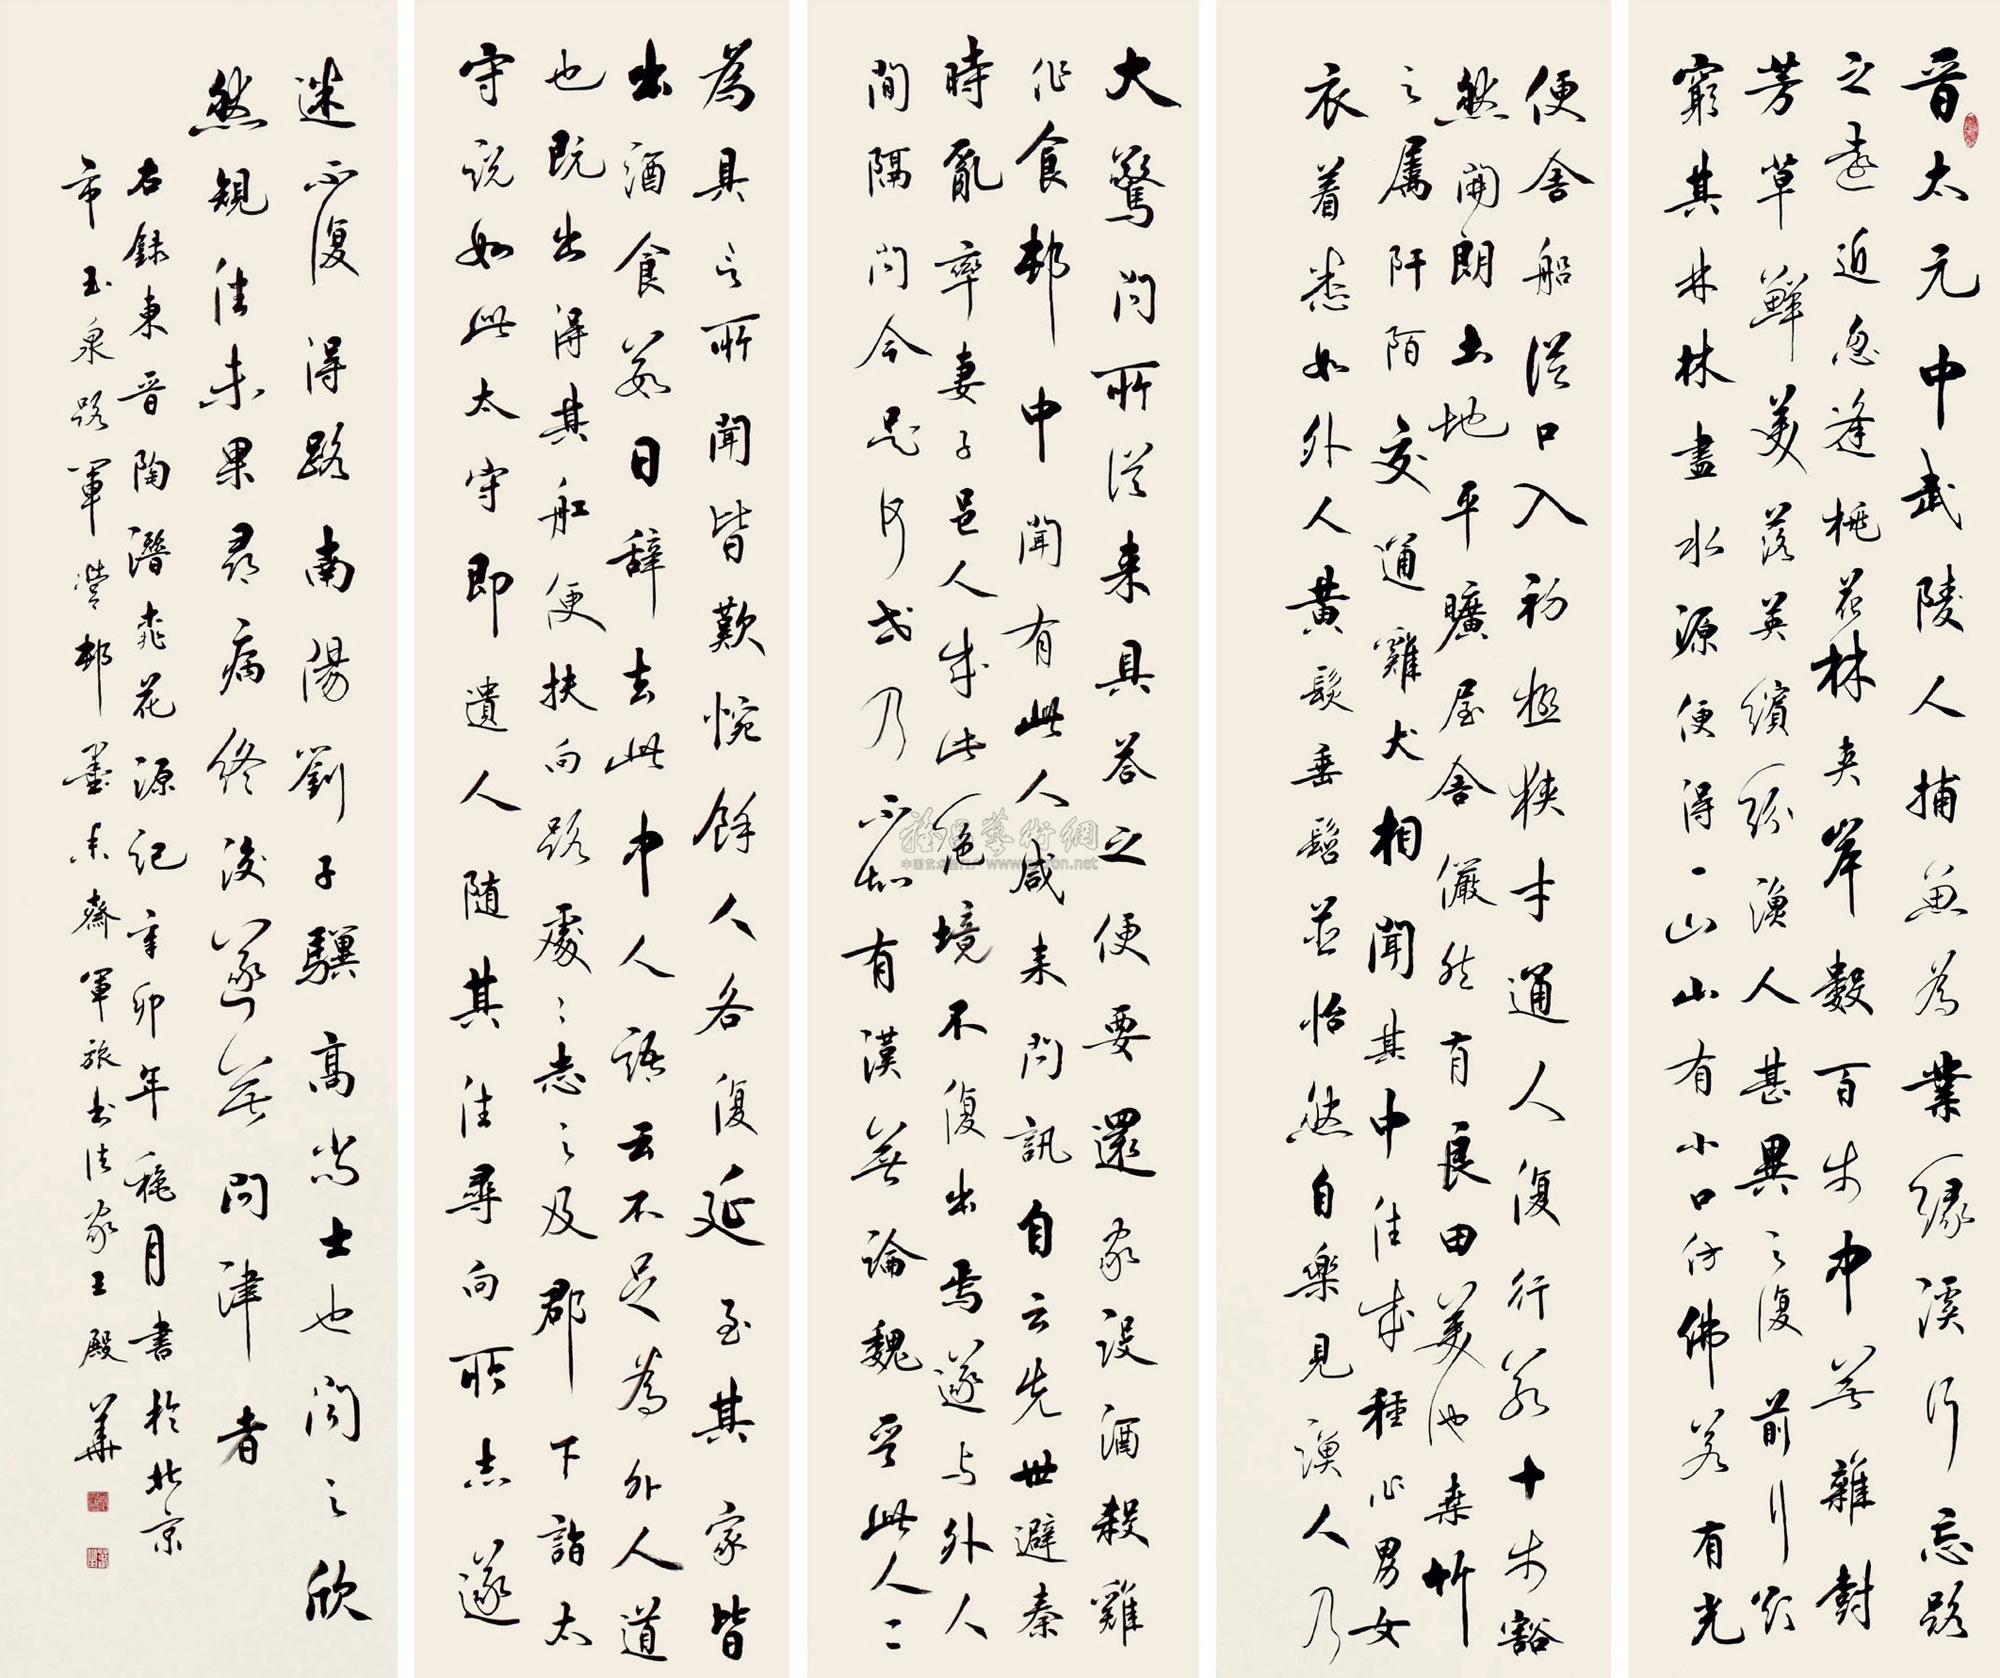 晋太元中武陵人捕魚為業緣溪行忘路
之遠近忽逢桃花林夹岸數百步中無雜樹
芳草鮮美落英繽紛漁人甚異之復前行欲
窮其林林盡水源便得一山山有小口仿佛若有光
便舍船從口入初極狹才通人復行數十步豁
然開朗土地平曠屋舍儼然有良田美池桑竹
之属阡陌交通雞犬相聞其中往来種作男女
衣着悉如外人黄髮垂髫並怡然自樂見漁人乃
大驚问所從来具答之便要還家设酒殺雞
作食邨中聞有此人咸来问訊自云先世避秦
時亂率妻子邑人来此絕境不復出焉遂与外人
间隔问今是何世乃不知有漢無論魏晋此人一一
為具言所聞皆歎惋餘人各復延至其家皆
出酒食数日辞去此中人語云不足為外人道
也既出得其船便扶向路處處志之及郡下詣太
守说如此太守即遣人随其往尋向所志遂
迷不復得路南陽劉子驥高尚士也闻之欣
然規往未果尋病终後遂無問津者
右録東晋陶潜桃花源记辛卯年穐月書於北京
市玉泉路軍營邨墨未齋軍旅书法家王殿華
中国艺术 www.   .net